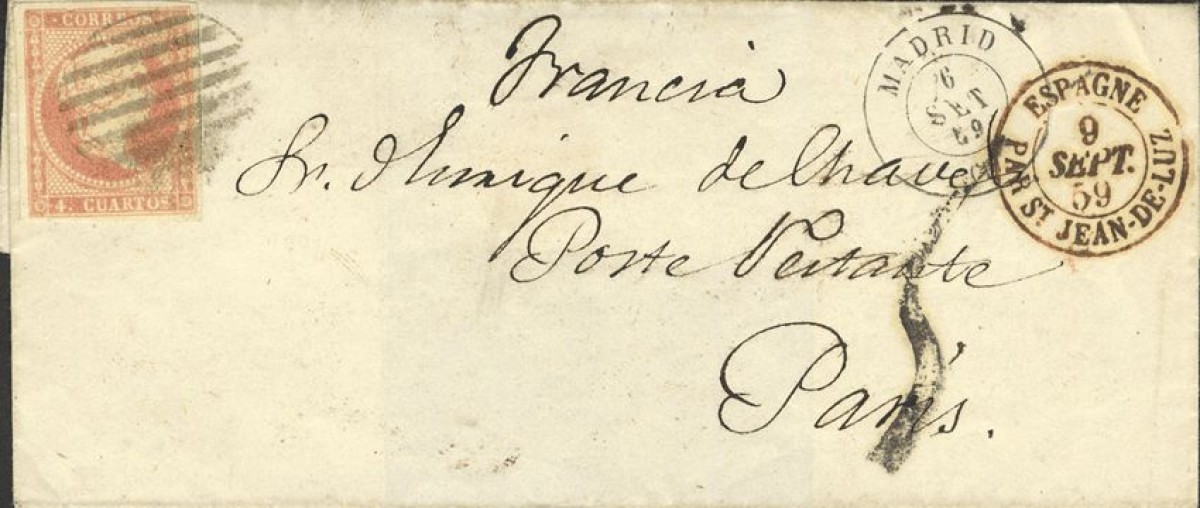 CORREOS
4. CUARTOS
Francia
Sr. Enrique de Chaves
Poste Restante
Paris.
MADRID
6
SET
59
ESPAGNE
9
SEPT.
59
PAR ST. JEAN-DE-LUZ